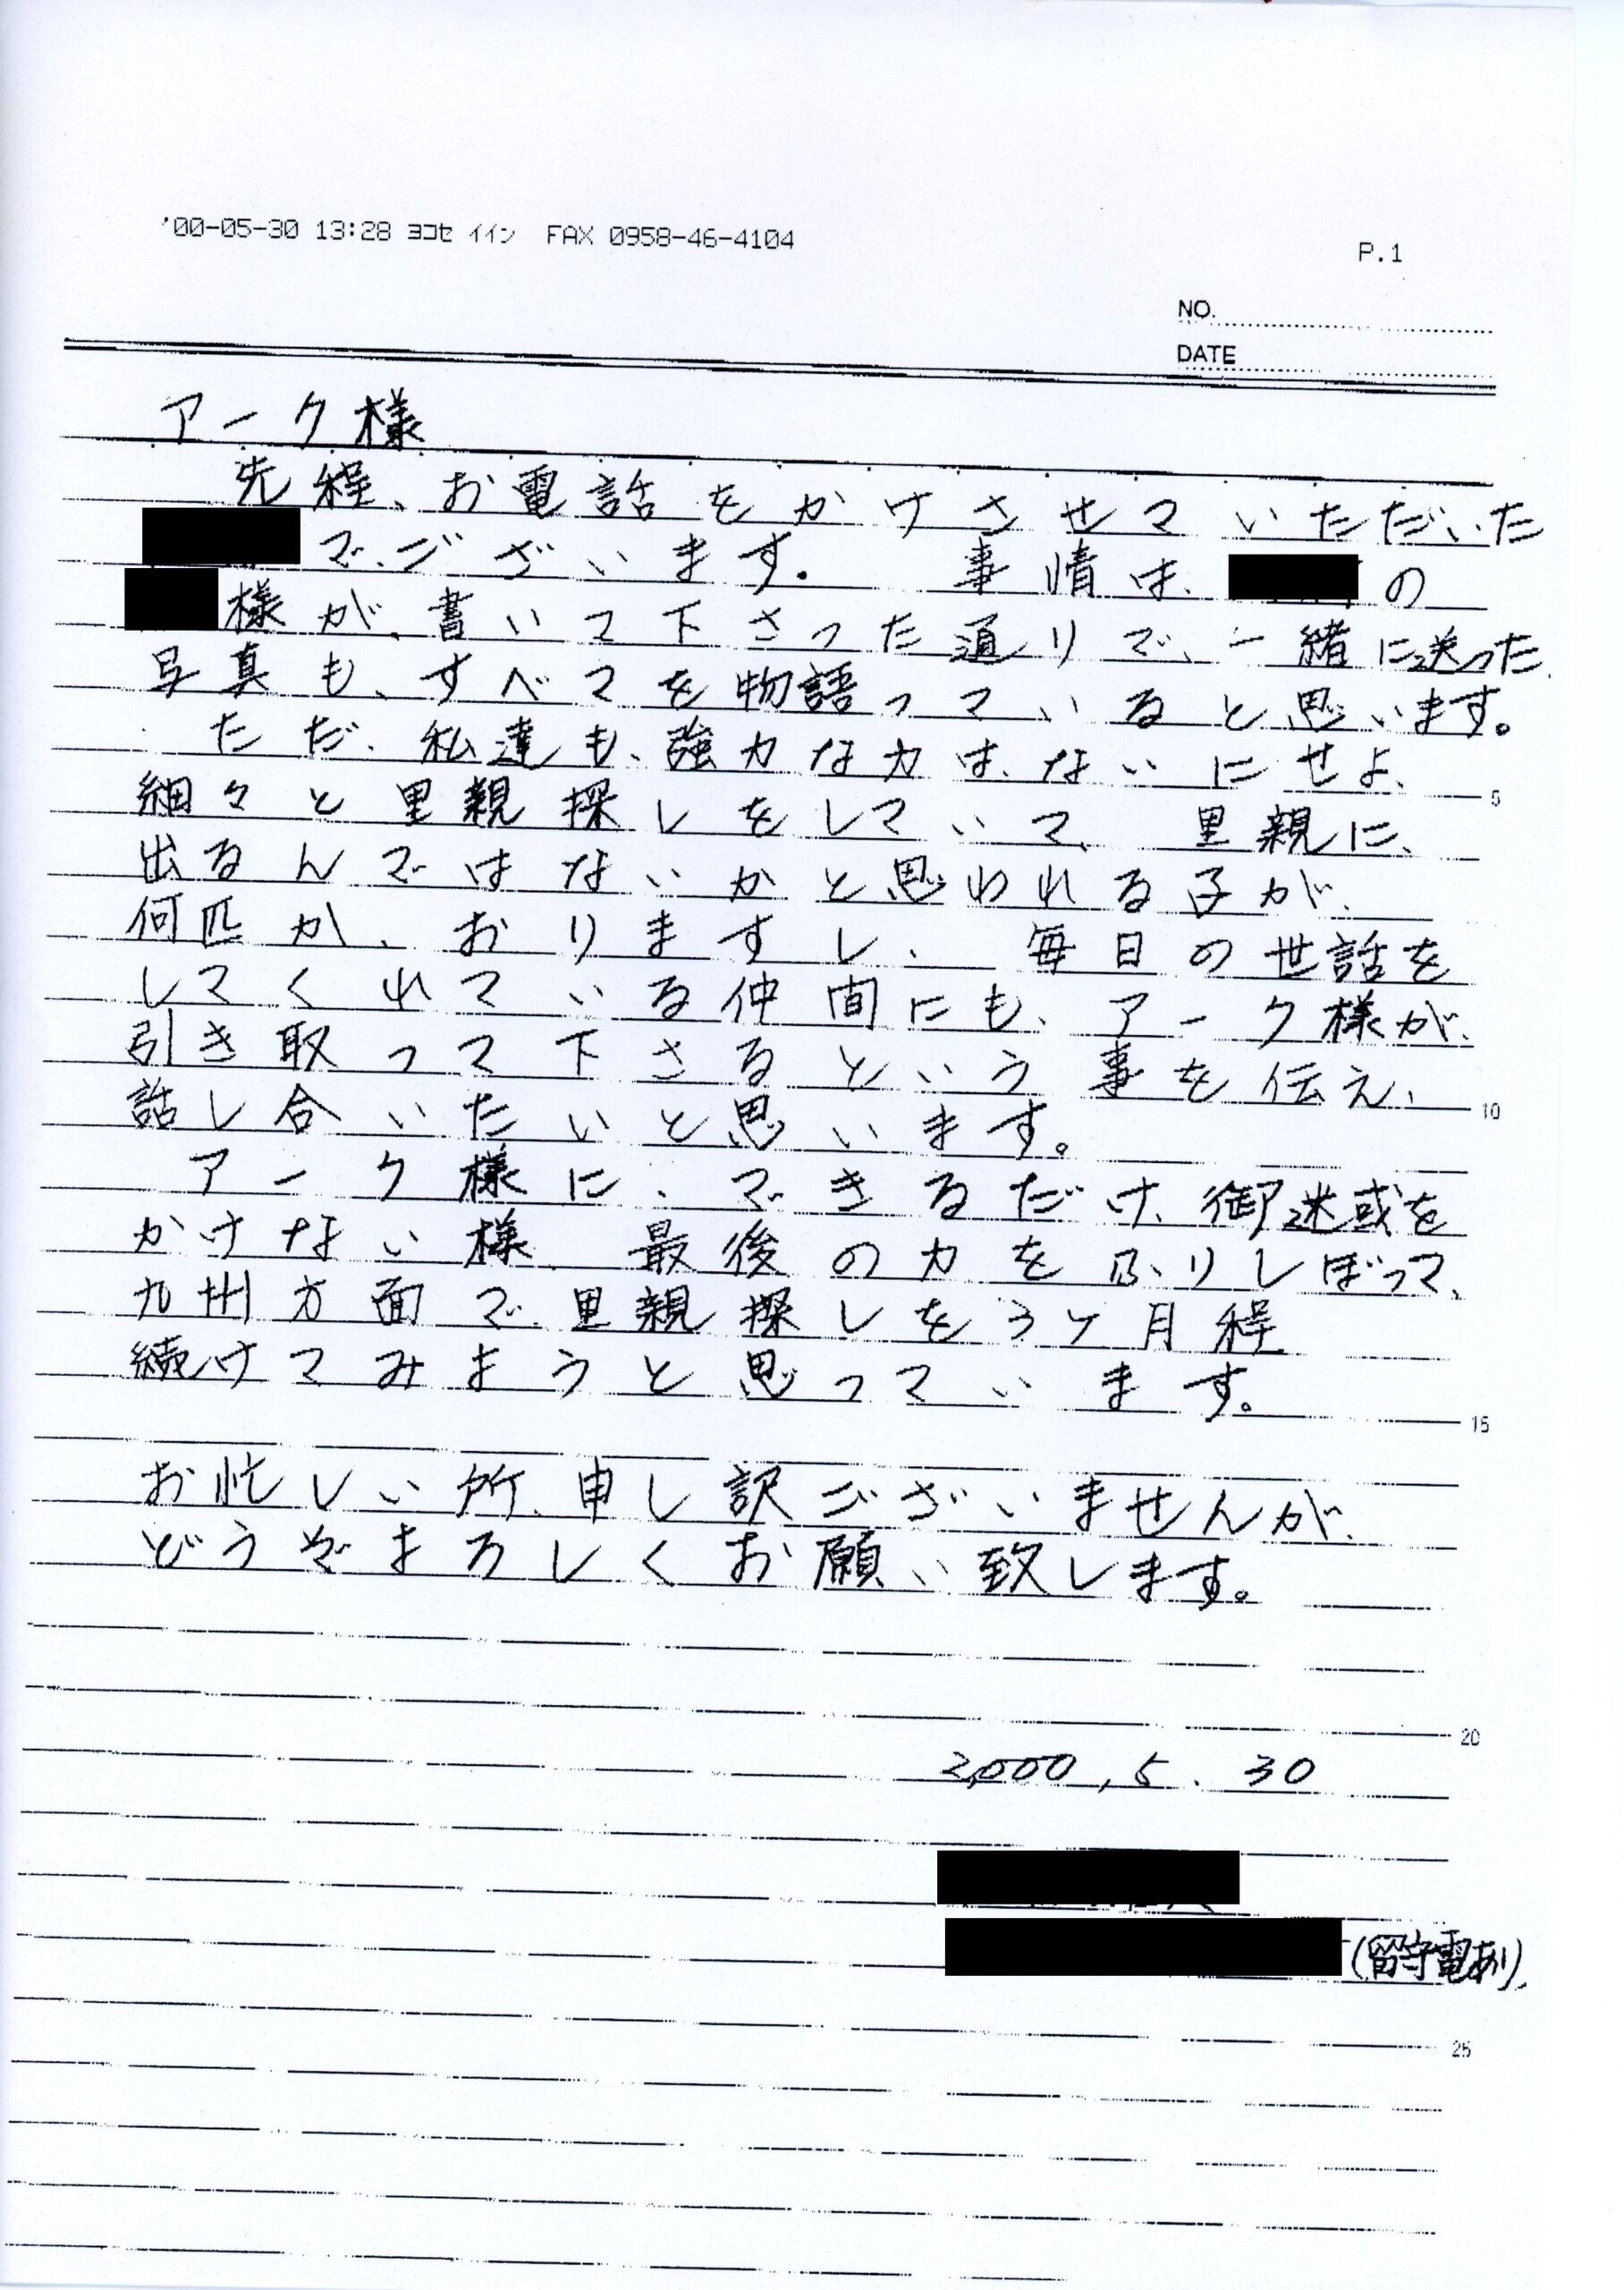 '00-05-30 13:28 ヨコセ イイン FAX 0958-46-4104 P.1
NO.
DATE
アーク様
先程、お電話をかけさせていただいた
でございます。 事情は、の
様が、書いて下さった通りで、一緒に送った
写真も、すべてを物語っていると思います。
ただ、私達も、強力な力は、ないにせよ、
5
細々と里親探しをしていて、里親に、
出るんではないかと思われる子が、
何匹か、おりますし、毎日の世話を
してくれている仲間にも、アーク様が、
引き取って下さるという事を伝え、
10
話し合いたいと思います。
アーク様に、できるだけ、御迷惑を
かけない様、最後の力をふりしぼって、
九州方面で、里親探しを3ヶ月程
続けてみようと思っています。
15
お忙しい所、申し訳ございませんが、
どうぞよろしくお願い致します。
20
2,000, 5. 30
(留守電あり)
25